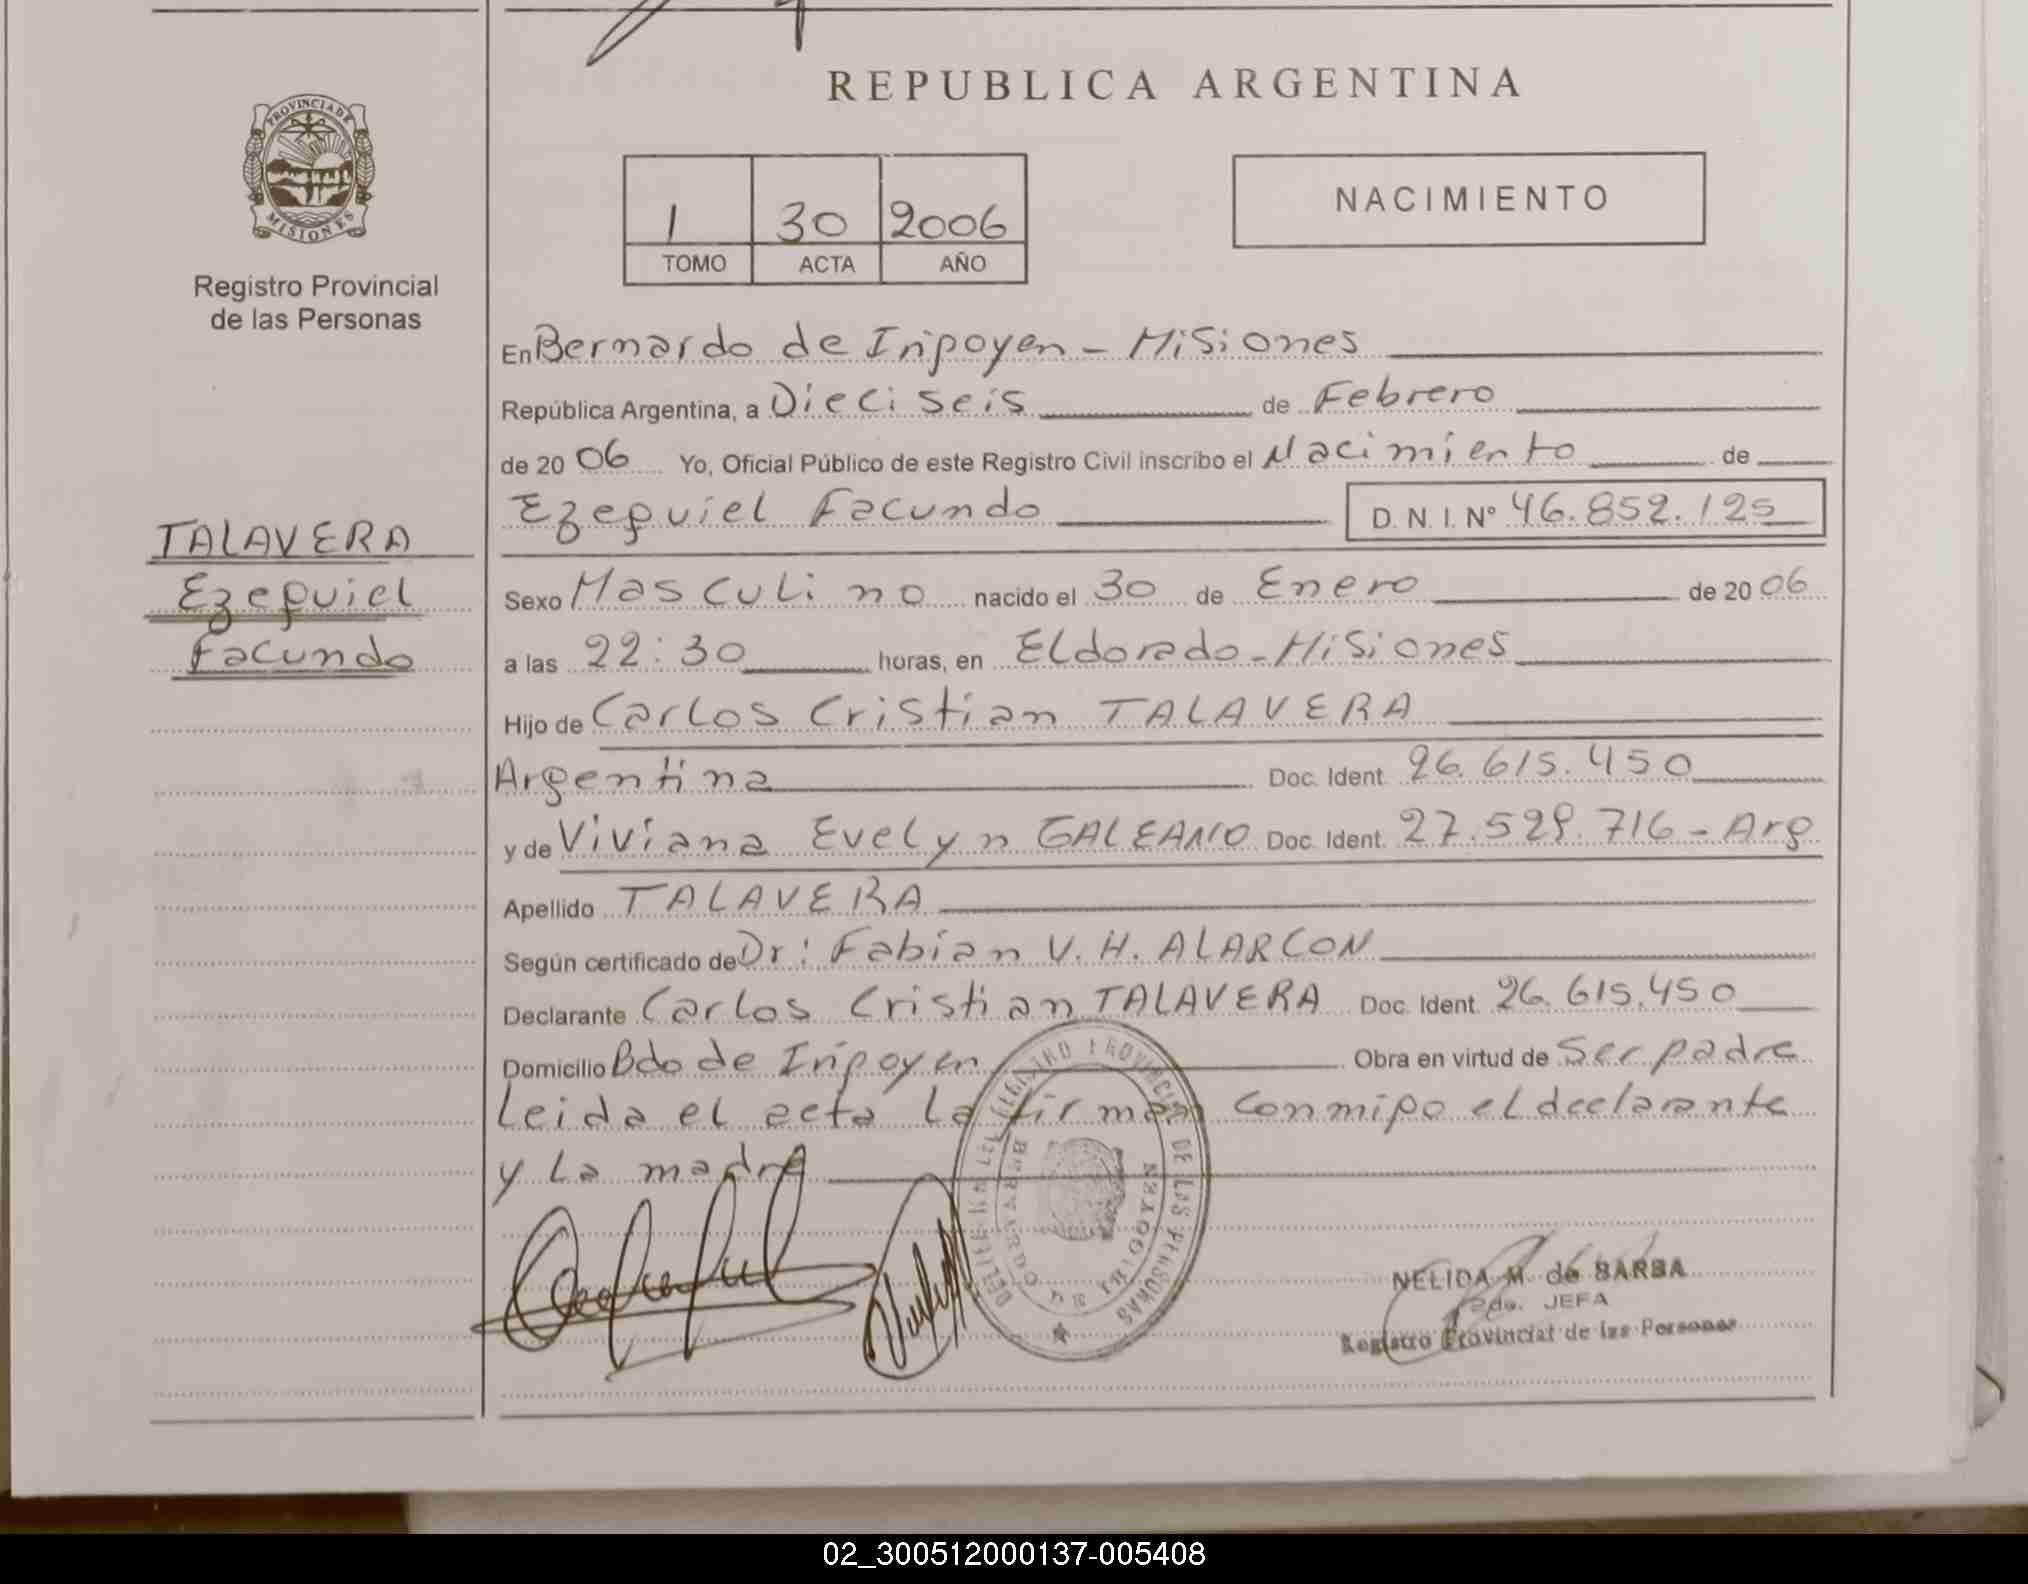 REPUBLICA ARGENTINA
PROVINCIA DE
MISIONES
Registro Provincial
de las Personas
1 30 2006
TOMO ACTA AÑO
NACIMIENTO
En Bernardo de Iripoyen - Misiones
República Argentina, a Dieciseis de Febrero
de 20 06 Yo, Oficial Público de este Registro Civil inscribo el Nacimiento de
Ezequiel Facundo D.N.I. Nº 46.852.125
TALAVERA
Ezequiel
Facundo
Sexo Masculino nacido el 30 de Enero de 20 06
a las 22:30 horas, en Eldorado - Misiones
Hijo de Carlos Cristian TALAVERA
Argentina Doc. Ident. 26.615.450
y de Viviana Evelyn GALEANO Doc. Ident. 27.529.716 - Arg
Apellido TALAVERA
Según certificado de Dr: Fabian V. H. ALARCON
Declarante Carlos Cristian TALAVERA Doc. Ident. 26.615.450
Domicilio Bdo de Iripoyen Obra en virtud de Ser padre
Leida el acta la firman conmigo el declarante
y la madre
PROVINCIAL DE LAS PERSONAS
BERNARDO DE IRIGOYEN
NELIDA M. de BARBA
2da. JEFA
Registro Provincial de las Personas
02_300512000137-005408